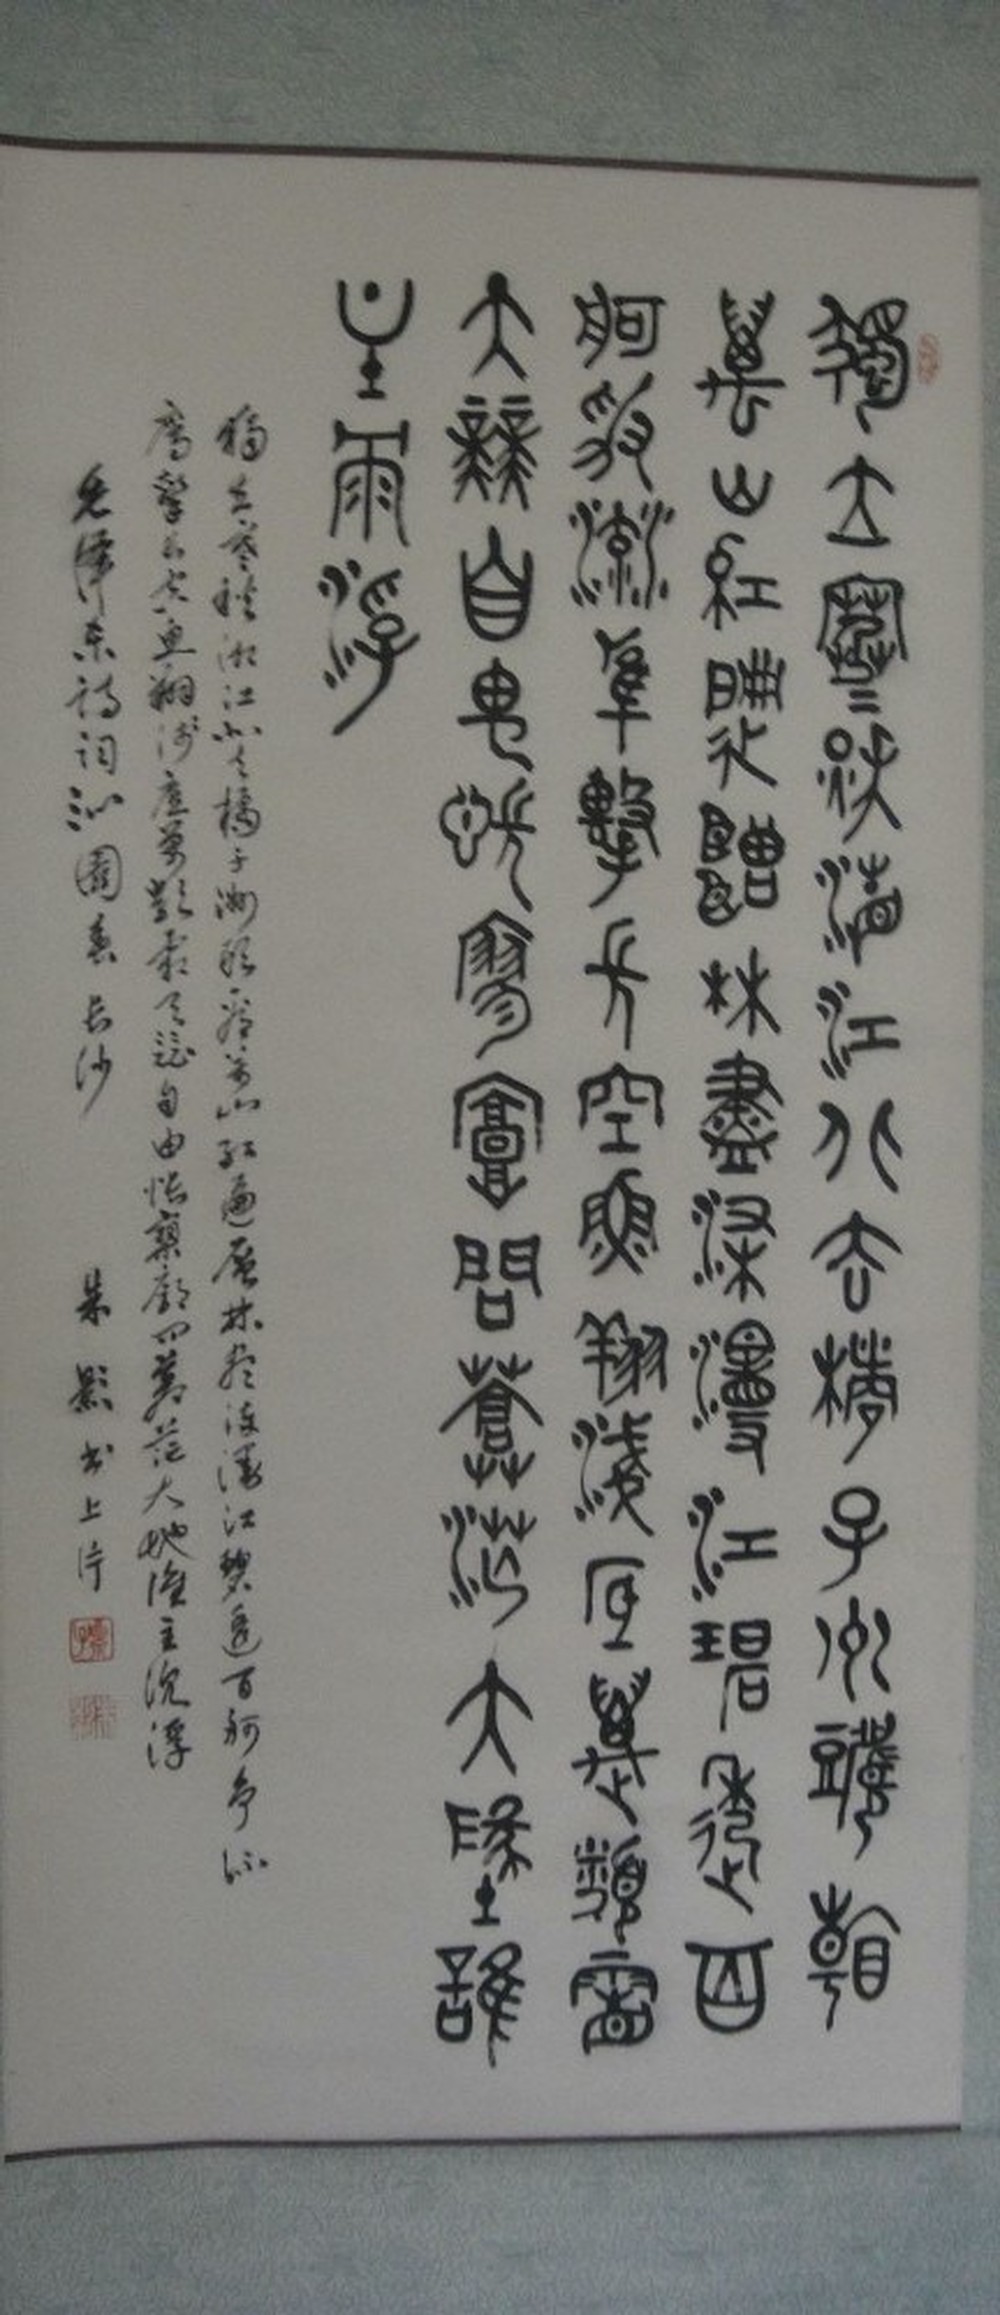 獨立寒秋湘江北去橘子州頭看
萬山紅遍層林盡染漫江碧透百
舸爭流鷹擊長空魚翔淺底萬類霜
天競自由悵寥廓問蒼茫大地誰
主沉浮
獨立寒秋湘江北去橘子洲頭看萬山紅遍層林盡染漫江碧透百舸爭流
鷹擊長空魚翔淺底萬類霜天競自由悵寥廓問蒼茫大地誰主沉浮
毛澤東詩詞沁園春長沙 朱 書上片